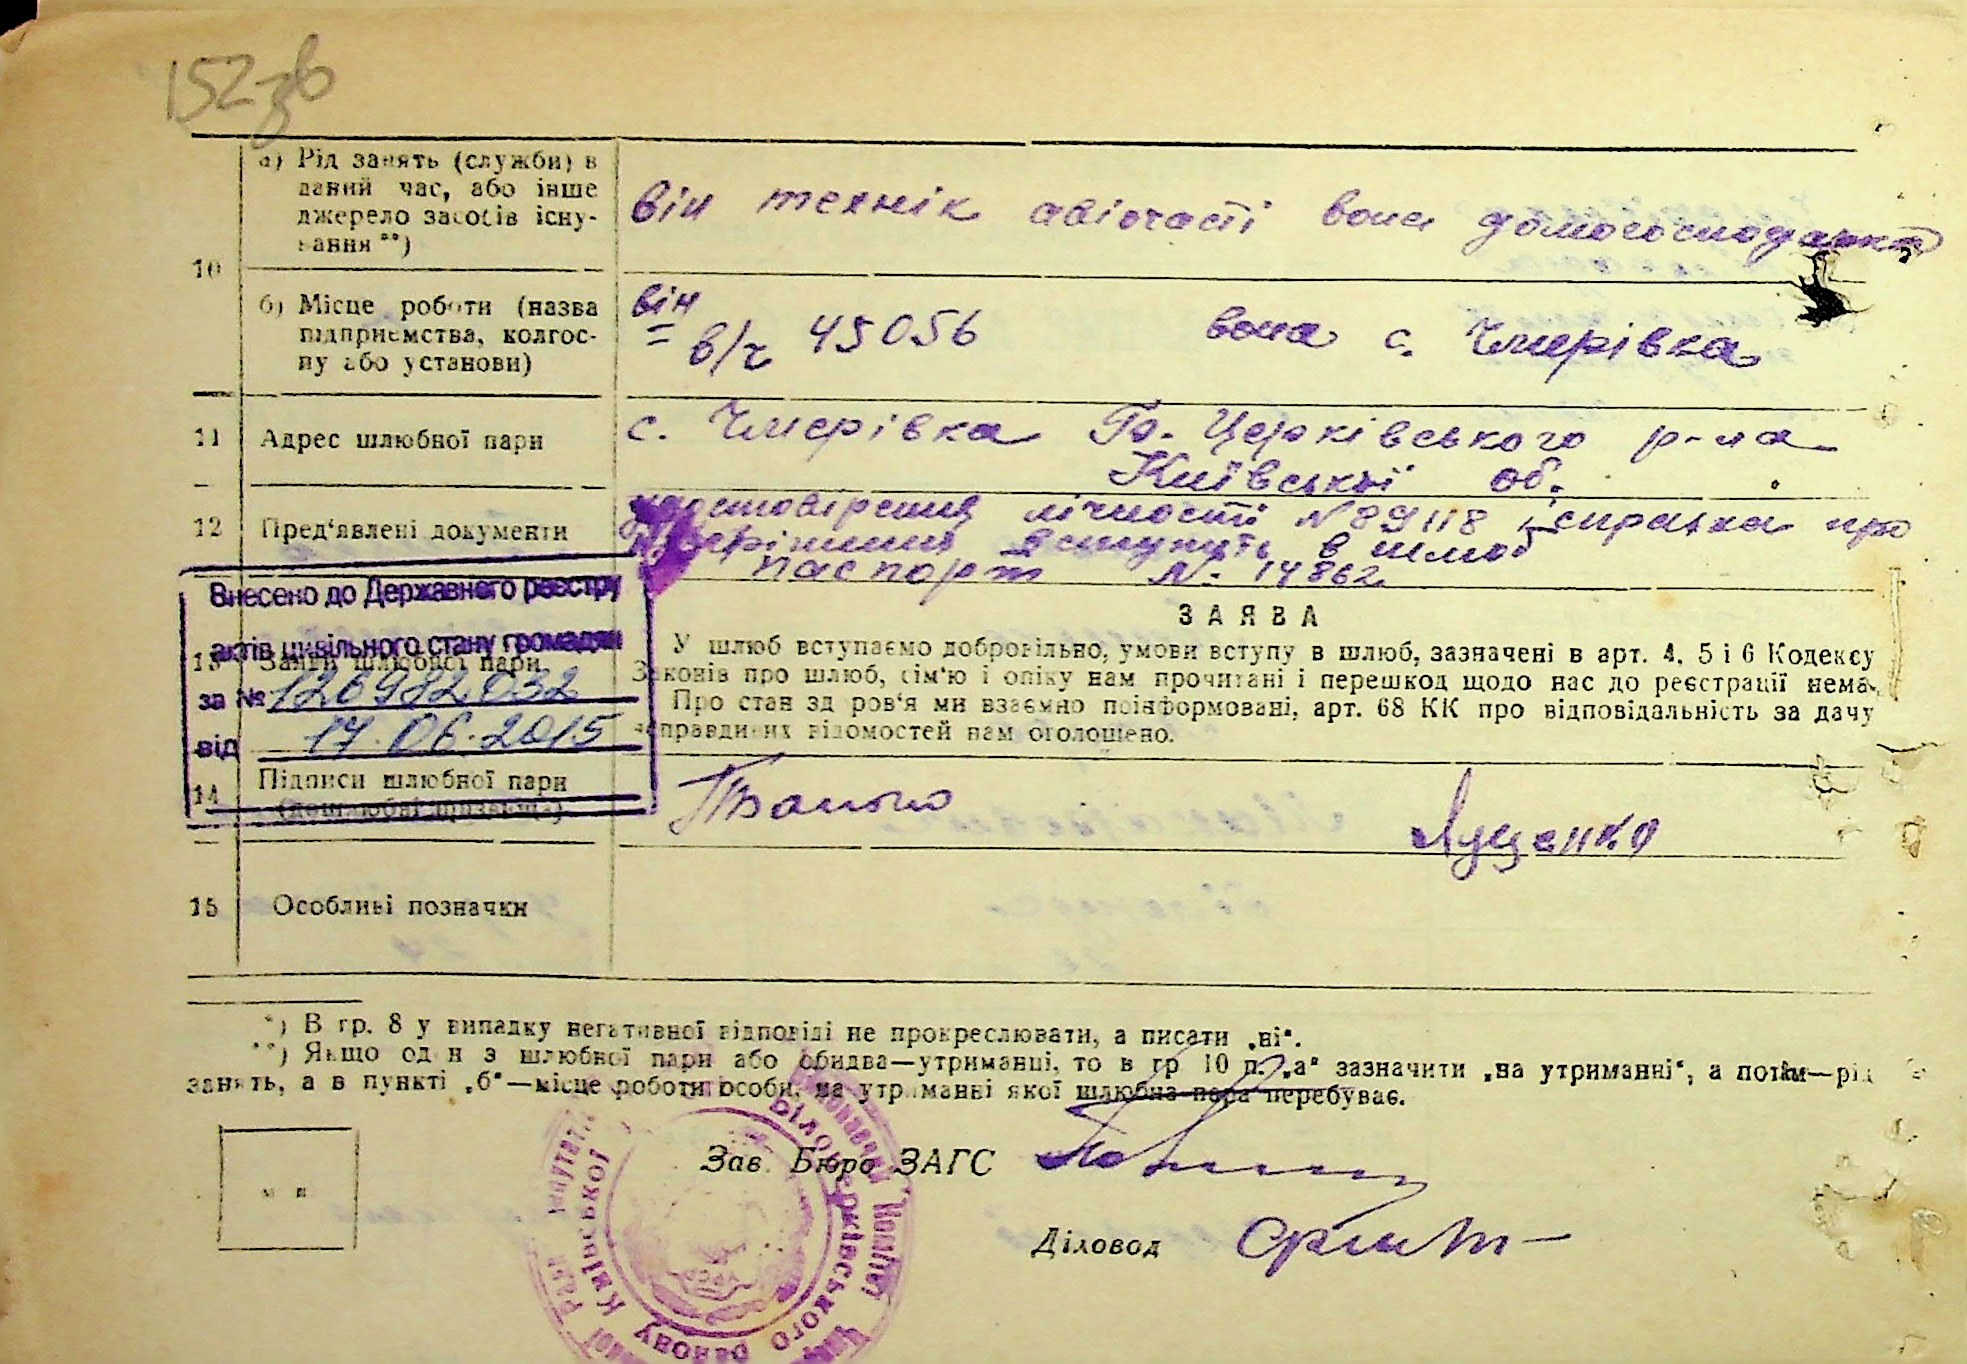 152зв
а) Рід занять (служби) в
даний час, або інше
джерело засобів існу-
вання **)
він технік авіочасті вона домогосподарка
10
б) Місце роботи (назва
підприємства, колгос-
пу або установи)
він
в/ч 45056 вона с. Чмерівка
11 Адрес шлюбної пари
с. Чмерівка Б. Церківського р-на
Київської об.
12 Пред‘явлені документи
удостовірения лічності №89118 і справка про
вступить в шлюб
паспорт №. 14862
Внесено до Державного реєстру
актів цивільного стану громадян
за № 126982032
від 17.06.2015
ЗАЯВА
13 Заяви шлюбної пари
У шлюб вступаємо добровільно, умови вступу в шлюб, зазначені в арт. 4, 5 і 6 Кодексу
Законів про шлюб, сім‘ю і опіку нам прочитані і перешкод щодо нас до реєстрації нема.
Про стан здоров‘я ми взаємно поінформовані, арт. 68 КК про відповідальність за дачу
неправдивих відомостей нам оголошено.
14 Підписи шлюбної пари
(дошлюбні прізвища)
Луценко
15 Особливі позначки
*) В гр. 8 у випадку негативної відповіді не прокреслювати, а писати „ні“.
**) Якщо один з шлюбної пари або обидва—утриманці, то в гр 10 п. „а“ зазначити „на утриманні“, а потім—рід
занять, а в пункті „б“—місце роботи особи, на утриманні якої шлюбна пара перебуває.
Зав. Бюро ЗАГС
м п
Діловод
Білоцерківського району Київської